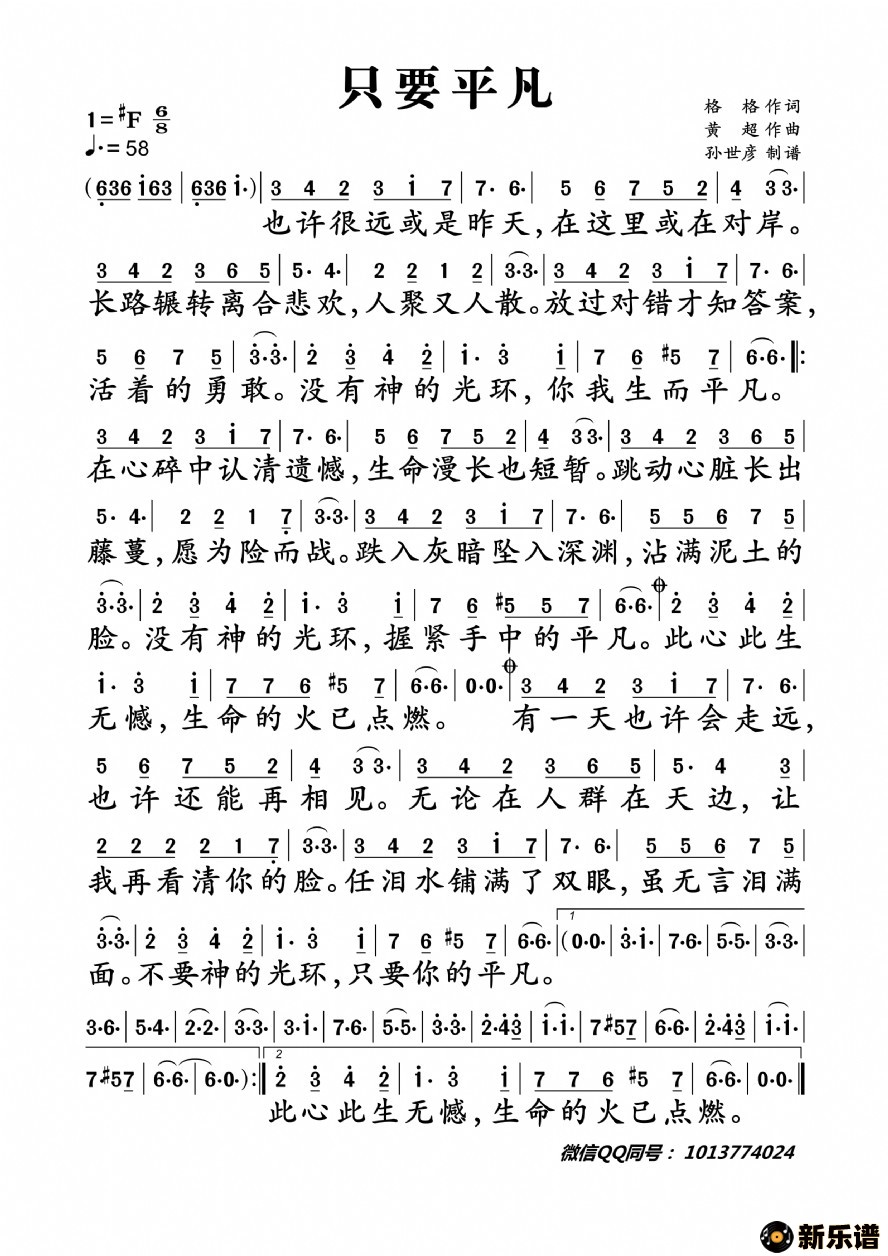 只要平凡
1=#F 6/8
♩.=58
格 格 作词
黄 超 作曲
孙世彦 制谱
(636 i63|636 i·)|3 4 2 3 i 7|7· 6·|5 6 7 5 2|4 3 3·|
也许很远或是昨天,在这里或在对岸。
3 4 2 3 6 5|5· 4·|2 2 1 2|3·3·|3 4 2 3 i 7|7· 6·|
长路辗转离合悲欢,人聚又人散。放过对错才知答案,
5 6 7 5|3·3·|2 3 4 2|i· 3 i|7 6 #5 7|6·6·:|
活着的勇敢。没有神的光环,你我生而平凡。
3 4 2 3 i 7|7· 6·|5 6 7 5 2|4 3 3·|3 4 2 3 6 5|
在心碎中认清遗憾,生命漫长也短暂。跳动心脏长出
5· 4·|2 2 1 7|3·3·|3 4 2 3 i 7|7· 6·|5 5 6 7 5|
藤蔓,愿为险而战。跌入灰暗坠入深渊,沾满泥土的
3·3·|2 3 4 2|i· 3 i|7 6 #5 5 7|6·6·|2 3 4 2|
脸。没有神的光环,握紧手中的平凡。此心此生
i· 3 i|7 7 6 #5 7|6·6·|0·0·|3 4 2 3 i 7|7· 6·|
无憾,生命的火已点燃。 有一天也许会走远,
5 6 7 5 2|4 3 3·|3 4 2 3 6 5|5· 4 3|
也许还能再相见。无论在人群在天边,让
2 2 2 2 1 7|3·3·|3 4 2 3 i 7|7· 6·|5 5 6 7 5|
我再看清你的脸。任泪水铺满了双眼,虽无言泪满
1
3·3·|2 3 4 2|i· 3 i|7 6 #5 7|6·6·|(0·0·|3·i·|7·6·|5·5·|3·3·|
面。不要神的光环,只要你的平凡。
3·6·|5·4·|2·2·|3·3·|3·i·|7·6·|5·5·|3·3·|2·43|i·i·|7#57|6·6·|2·43|i·i·|
2
7#57|6·6·|6·0·):|2 3 4 2|i· 3 i|7 7 6 #5 7|6·6·|0·0·|
此心此生无憾,生命的火已点燃。
微信QQ同号: 1013774024
新乐谱